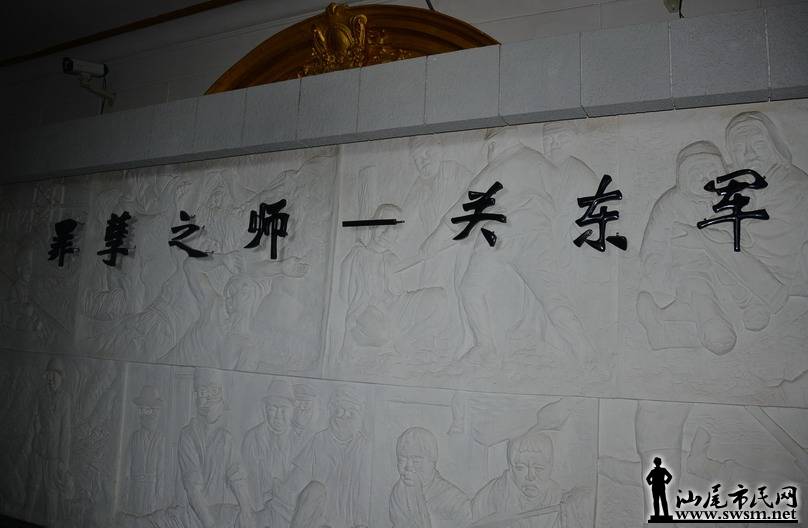 罪孽之师—关东军
汕尾市民网
www.swsm.net